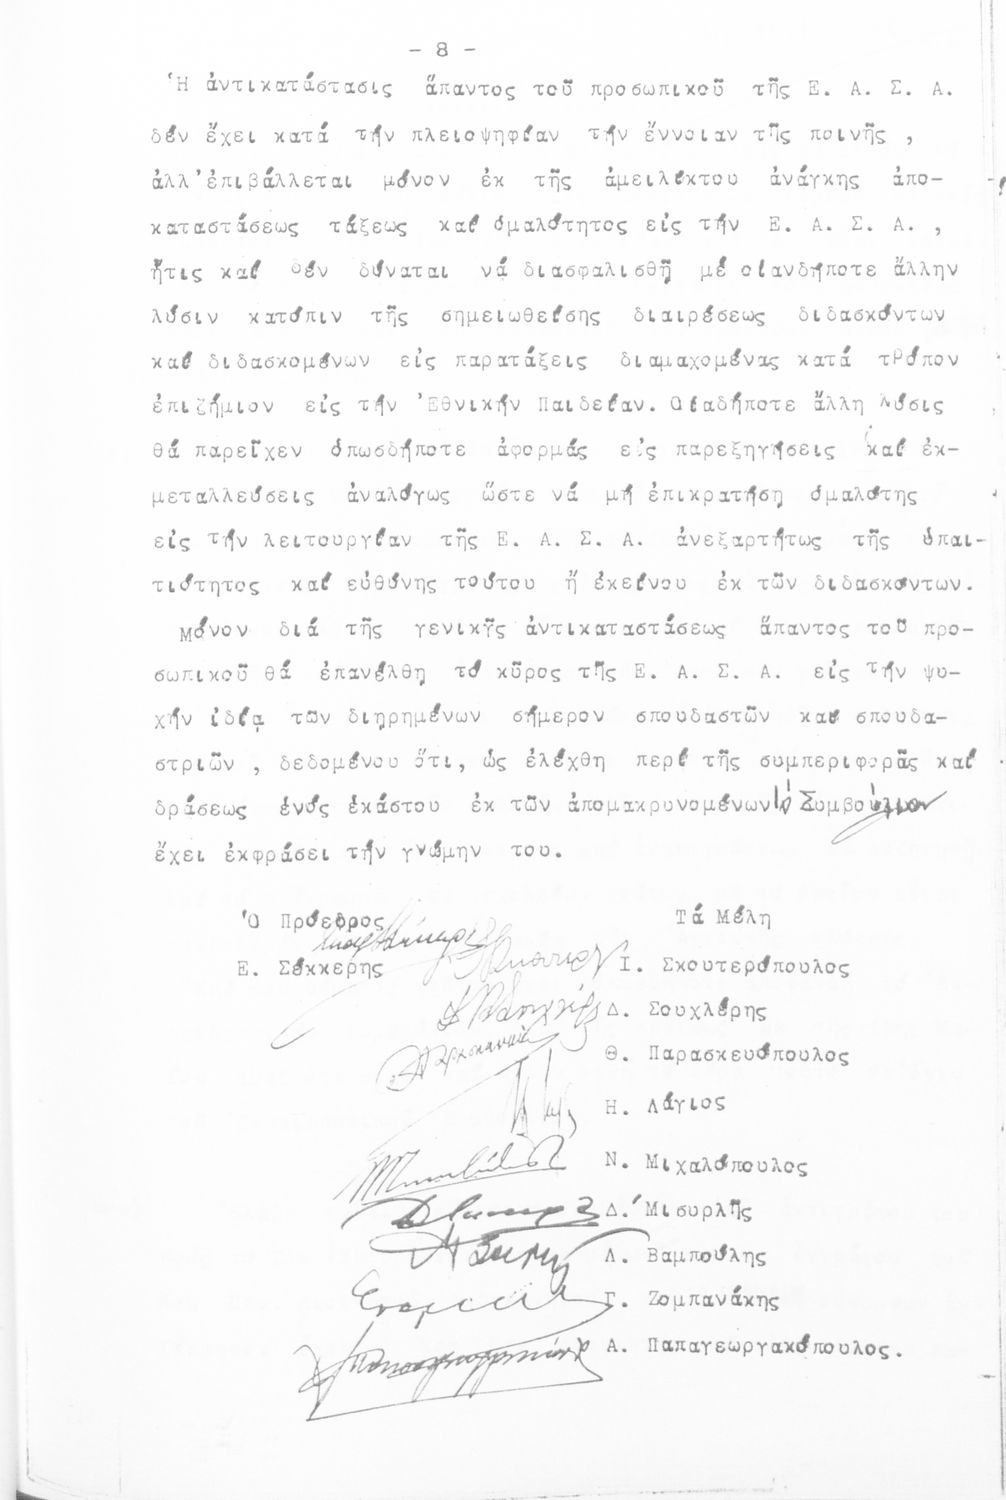 - 8 -
Ἡ ἀντικατάστασις ἅπαντος τοῦ προσωπικοῦ τῆς Ε. Α. Σ. Α.
δέν ἔχει κατά τήν πλειοψηφίαν τήν ἔννοιαν τῆς ποινῆς ,
ἀλλ'ἐπιβάλλεται μόνον ἐκ τῆς ἀμειλίκτου ἀνάγκης ἀπο-
καταστάσεως τάξεως καί ὁμαλότητος εἰς τήν Ε. Α. Σ. Α. ,
ἥτις καί δέν δύναται νά διασφαλισθῇ μέ οἱανδήποτε ἄλλην
λύσιν κατόπιν τῆς σημειωθείσης διαιρέσεως διδασκόντων
καί διδασκομένων εἰς παρατάξεις διαμαχομένας κατά τρόπον
ἐπιζήμιον εἰς τήν Ἐθνικήν Παιδείαν. Οἱαδήποτε ἄλλη λύσις
θά παρεῖχεν ὁπωσδήποτε ἀφορμάς εἰς παρεξηγήσεις καί ἐκ-
μεταλλεύσεις ἀναλόγως ὥστε νά μή ἐπικρατήσῃ ὁμαλότης
εἰς τήν λειτουργίαν τῆς Ε. Α. Σ. Α. ἀνεξαρτήτως τῆς ὑπαι-
τιότητος καί εὐθύνης τούτου ἤ ἐκείνου ἐκ τῶν διδασκόντων.
Μόνον διά τῆς γενικῆς ἀντικαταστάσεως ἅπαντος τοῦ προ-
σωπικοῦ θά ἐπανέλθῃ τό κῦρος τῆς Ε. Α. Σ. Α. εἰς τήν ψυ-
χήν ἰδίᾳ τῶν διηρημένων σήμερον σπουδαστῶν καί σπουδα-
στριῶν , δεδομένου ὅτι, ὡς ἐλέχθη περί τῆς συμπεριφορᾶς καί
δράσεως ἑνός ἑκάστου ἐκ τῶν ἀπομακρυνομένων τό Συμβούλιον
ἔχει ἐκφράσει τήν γνώμην του.
Ὁ Πρόεδρος
Τά Μέλη
Ε. Σέκκερης
Ι. Σκουτερόπουλος
Δ. Σουχλέρης
Θ. Παρασκευόπουλος
Η. Λάγιος
Ν. Μιχαλόπουλος
Δ. Μισυρλῆς
Λ. Βαμπούλης
Γ. Ζομπανάκης
Α. Παπαγεωργακόπουλος.